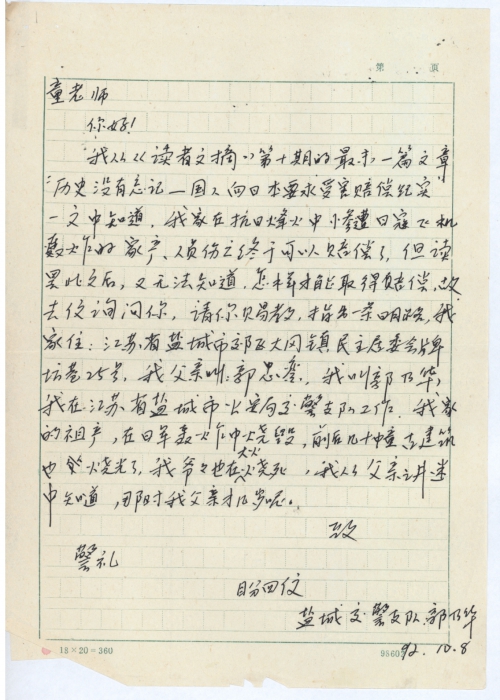 第 页
童老师
你好!
我从《读者文摘》第十期的最末一篇文章
"历史没有忘记—国人向日本要求受害赔偿纪实
一文中知道,我家在抗日烽火中惨遭日寇飞机
轰炸的家产、人员伤亡终于可以赔偿了,但读
罢此文后,又无法知道,怎样才能取得赔偿,故
去仪询问你,请你赐教,指出一条明路,我
家住:江苏省盐城市郊区大冈镇民主居委会牌
坊巷25号,我父亲叫郭忠,我叫郭乃华,
我在江苏省盐城市公安局交警支队工作。我家
的祖产,在日军轰炸中烧毁,前后几十幢古建筑
也烧光了,我爷々也在大火烧死,我从父亲讲述
中知道,那时我父亲才几岁呢。
致
警礼
盼回仪
盐城交警支队郭乃华
92.10.8
18×20=360